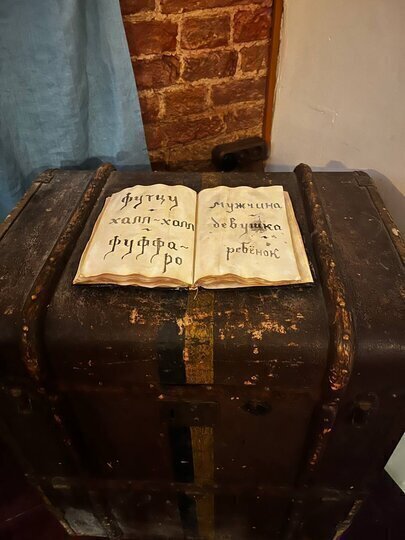 футцу
халл-халл
фуффа-
ро
мужчина
девушка
ребёнок